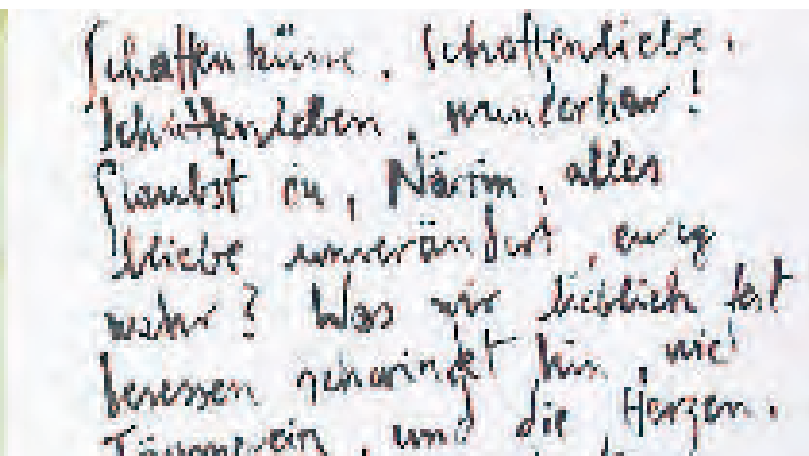 Schattenküsse, Schattenliebe,
Schattenleben, wunderbar!
Glaubst du, Närrin, alles
bliebe unverändert, ewig
wahr? Was wir lieblich fest
besessen schwindet hin, wie
Träumerein, und die Herzen,